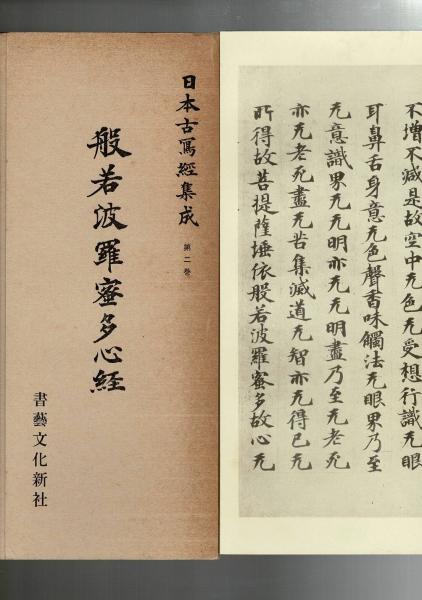 日本古寫經集成 第二巻
般若波羅蜜多心経
書藝文化新社
不增不減是故空中无色无受想行識无眼
耳鼻舌身意无色聲香味觸法无眼界乃至
无意識界无无明亦无无明盡乃至无老死
亦无老死盡无苦集滅道无智亦无得已无
所得故菩提薩埵依般若波羅蜜多故心无